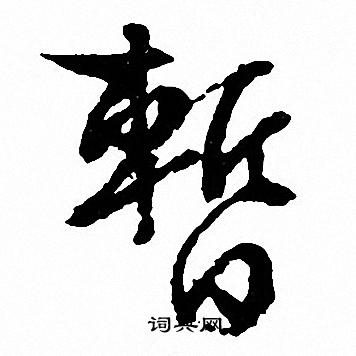 暫
词典网